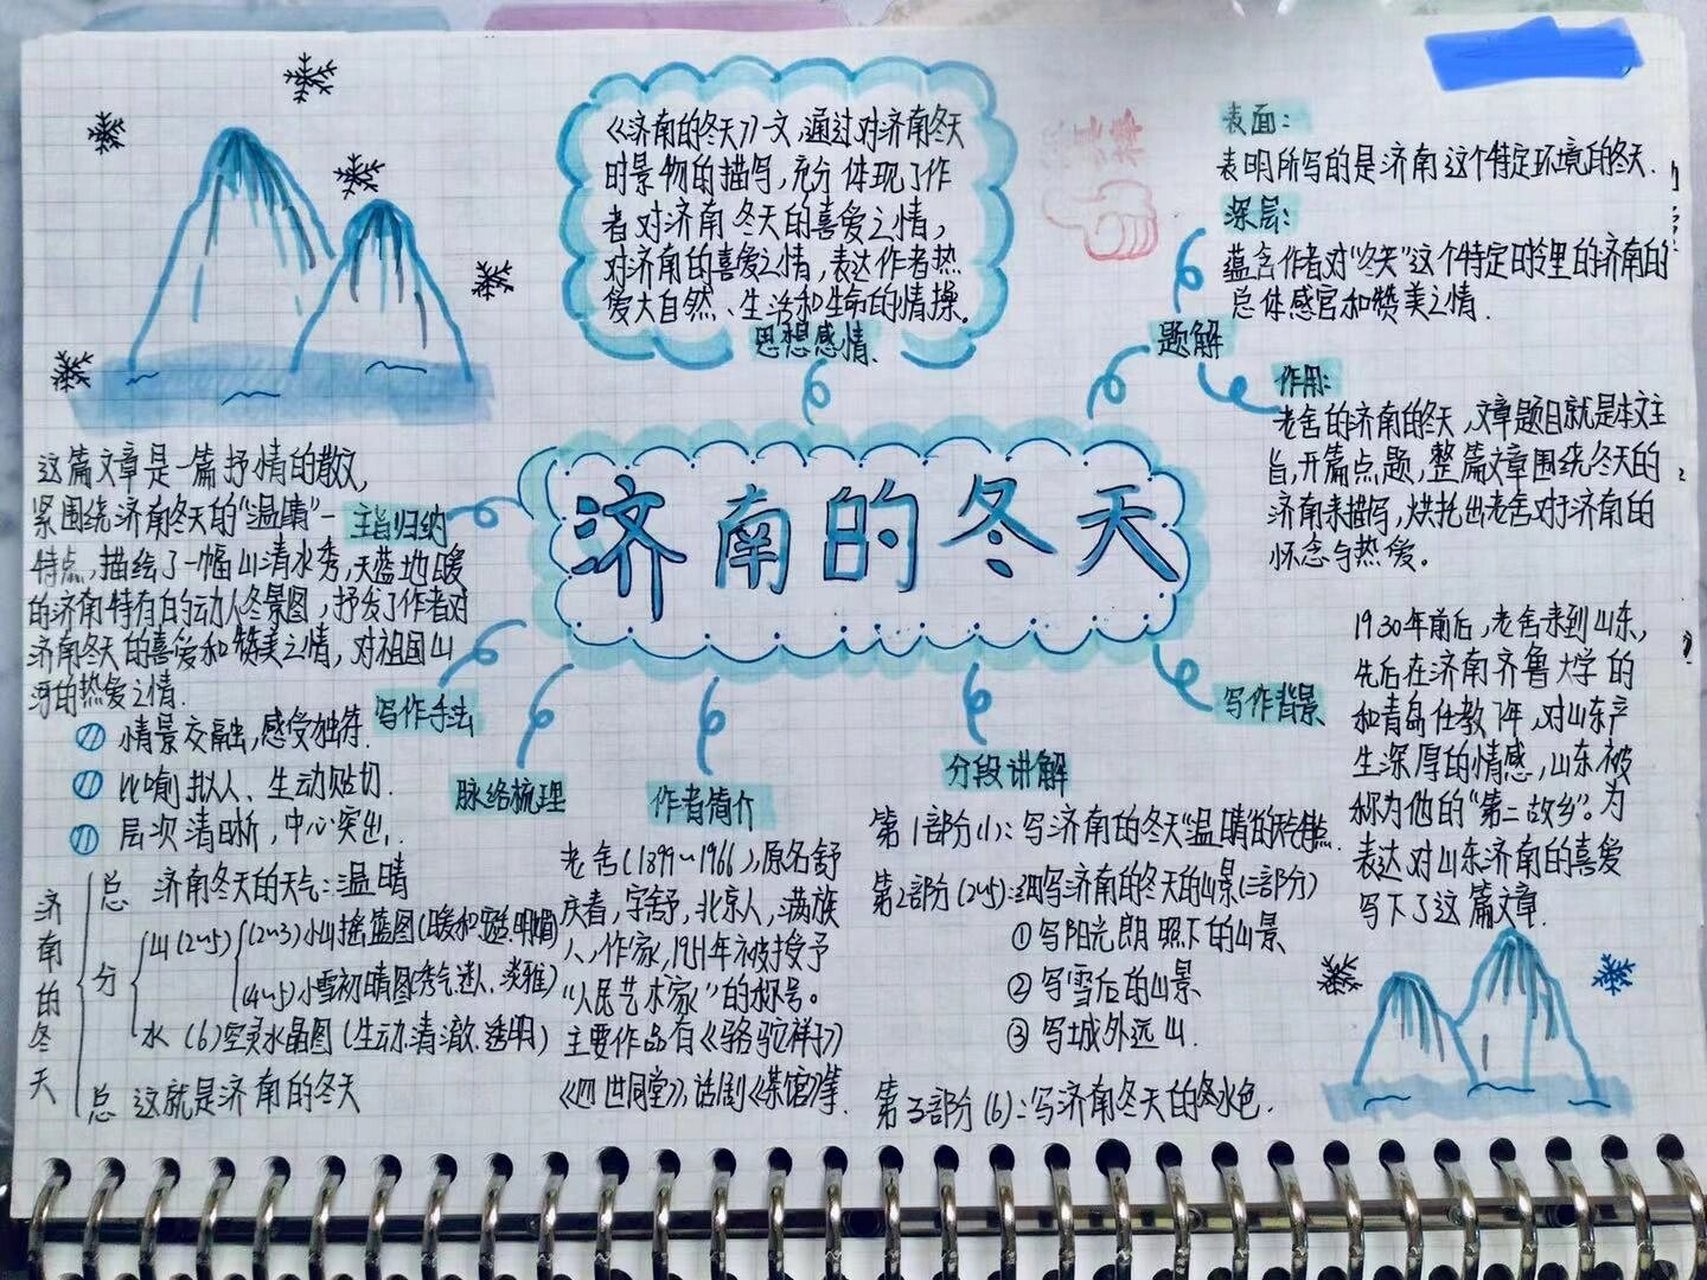 《济南的冬天》一文,通过对济南冬天
时景物的描写,充分体现了作
者对济南冬天的喜爱之情,
对济南的喜爱之情,表达作者热
爱大自然、生活和生命的情操。
思想感情.
表面:
表明所写的是济南这个特定环境的冬天.
深层:
蕴含作者对“冬天”这个特定时令里的济南的
总体感官和赞美之情.
题解
作用:
老舍的济南的冬天,文章题目就是本文主
旨,开篇点题,整篇文章围绕冬天的
济南来描写,烘托出老舍对于济南的
怀念与热爱。
济南的冬天
这篇文章是一篇抒情的散文,
紧围绕济南冬天的“温晴”一
特点,描绘了一幅山清水秀,天蓝地暖
的济南特有的动人冬景图,抒发了作者对
济南冬天的喜爱和赞美之情,对祖国山
河的热爱之情.
主旨归纳
写作手法
情景交融,感受独特.
比喻拟人、生动贴切.
层次清晰,中心突出.
脉络梳理
济南的冬天
总 济南冬天的天气:温晴
分
山(2~5)
(2~3)小山摇篮图(暖和.舒适.明媚)
(4~5)小雪初晴图(秀气.迷人.淡雅)
水(6)空灵水晶图(生动.清澈.透明)
总 这就是济南的冬天
作者简介
老舍(1899~1966),原名舒
庆春,字舍予,北京人,满族
人,作家,1951年被授予
“人民艺术家”的称号。
主要作品有《骆驼祥子》
《四世同堂》,话剧《茶馆》等.
分段讲解
第1部分(1):写济南的冬天“温晴”的天气特点.
第2部分(2~5):细写济南的冬天的山景(三部分)
①写阳光朗照下的山景
②写雪后的山景
③写城外远山.
第3部分(6):写济南冬天的冬水色.
写作背景
1930年前后,老舍来到山东,
先后在济南齐鲁大学的
和青岛任教7年,对山东产
生深厚的情感,山东被
称为他的“第二故乡”。为
表达对山东济南的喜爱
写下了这篇文章.